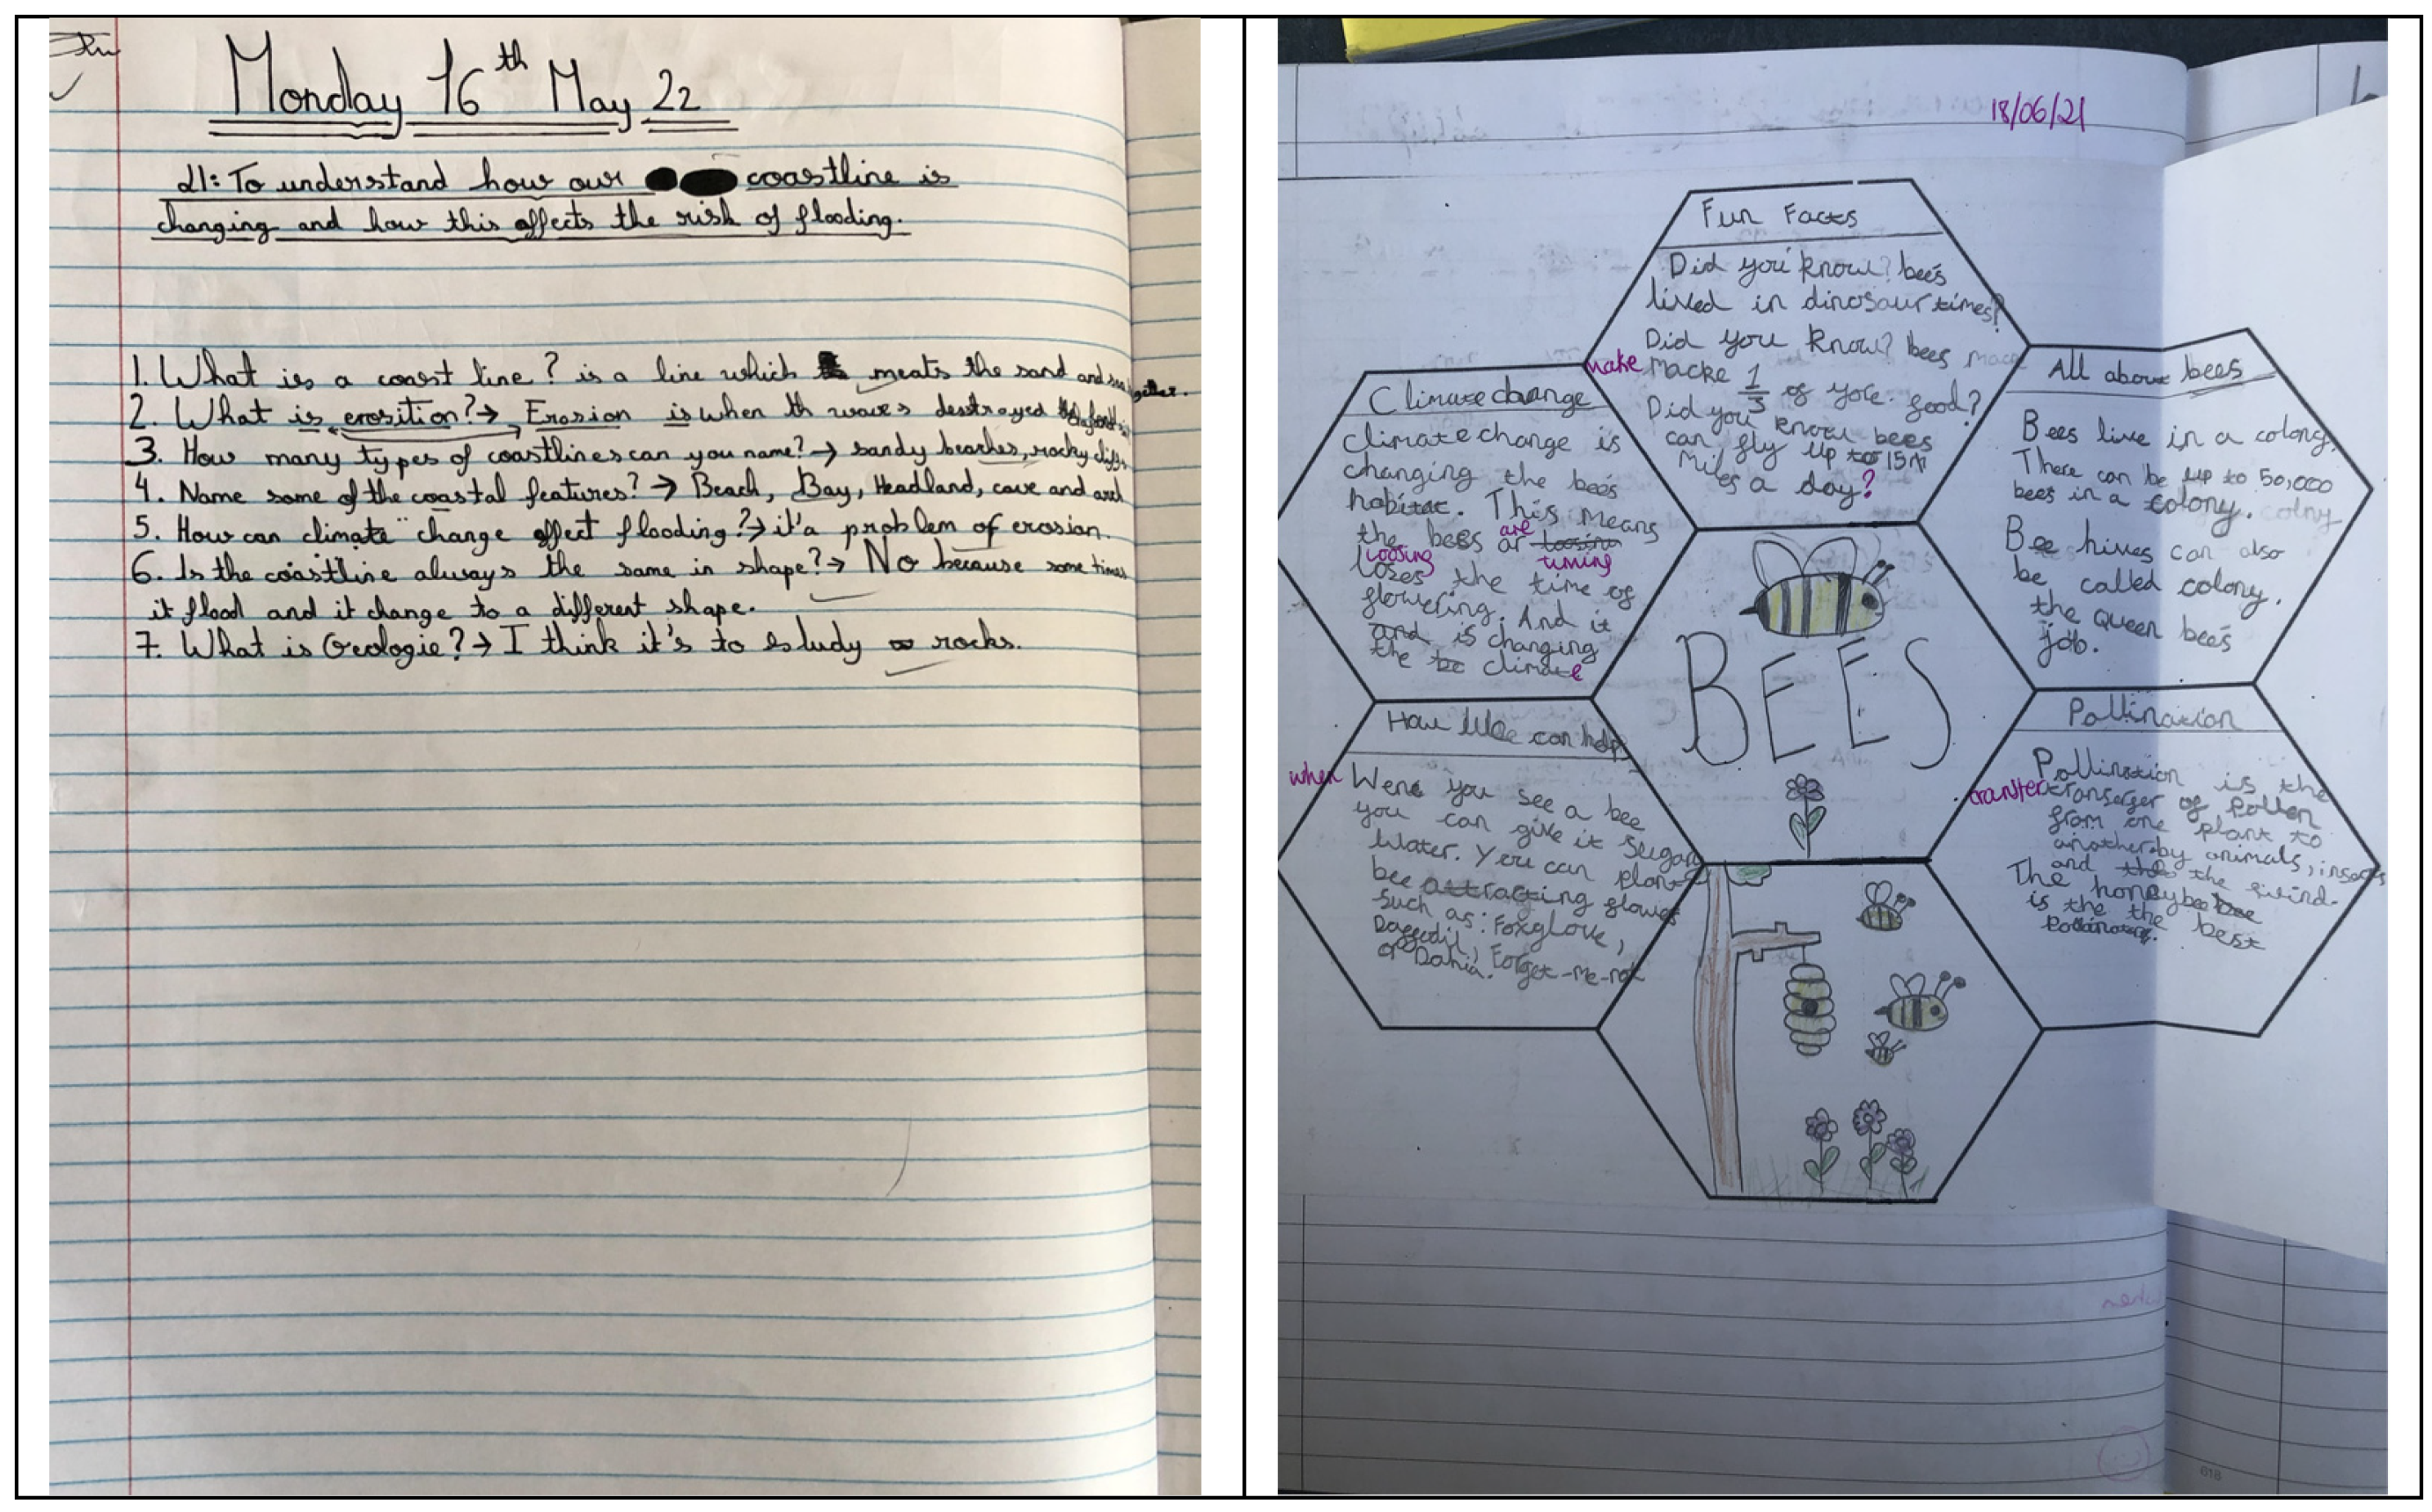 Monday 16th May 22
LI: To understand how our coastline is
changing and how this affects the risk of flooding.
1. What is a coast line? is a line which meats the sand and sea together.
2. What is erosition? → Erosion is when th waves destroyed
3. How many types of coastlines can you name? → sandy beaches, rocky cliffs
4. Name some of the coastal features? → Beach, Bay, Headland, cave and arch
5. How can climate change affect flooding? → it's a problem of erosion.
6. Is the coastline always the same in shape? → No because some times
it flood and it change to a different shape.
7. What is Geologie? → I think it's to study rocks.
18/06/21
Fun Facts
Did you know? bees
lived in dinosaur times?
Did you know? bees mace
make macke 1/3 of yore food?
Did you know bees
can fly up to 15
Miles a day?
Climate change
Climate change is
changing the bees
habitat. This means
are
the bees ar loosing
loosing timing
loses the time of
flowering. And it
and is changing
the be climate
All about bees
Bees live in a colony.
There can be up to 50,000
bees in a colony. colny
Bee hives can also
be called colony.
the Queen bees
job.
BEES
How We can help
when Wene you see a bee
you can give it Sugar
Water. You can plant
bee attracting flowers
such as: Foxglove,
Daffodil, Forget-me-not
or Dahia.
Pollination
Pollination is the
transfer transerger of Pollen
from one plant to
another by animals, insects
and the wind.
The honeybee bee
is the the best
Pollinators.
when
618